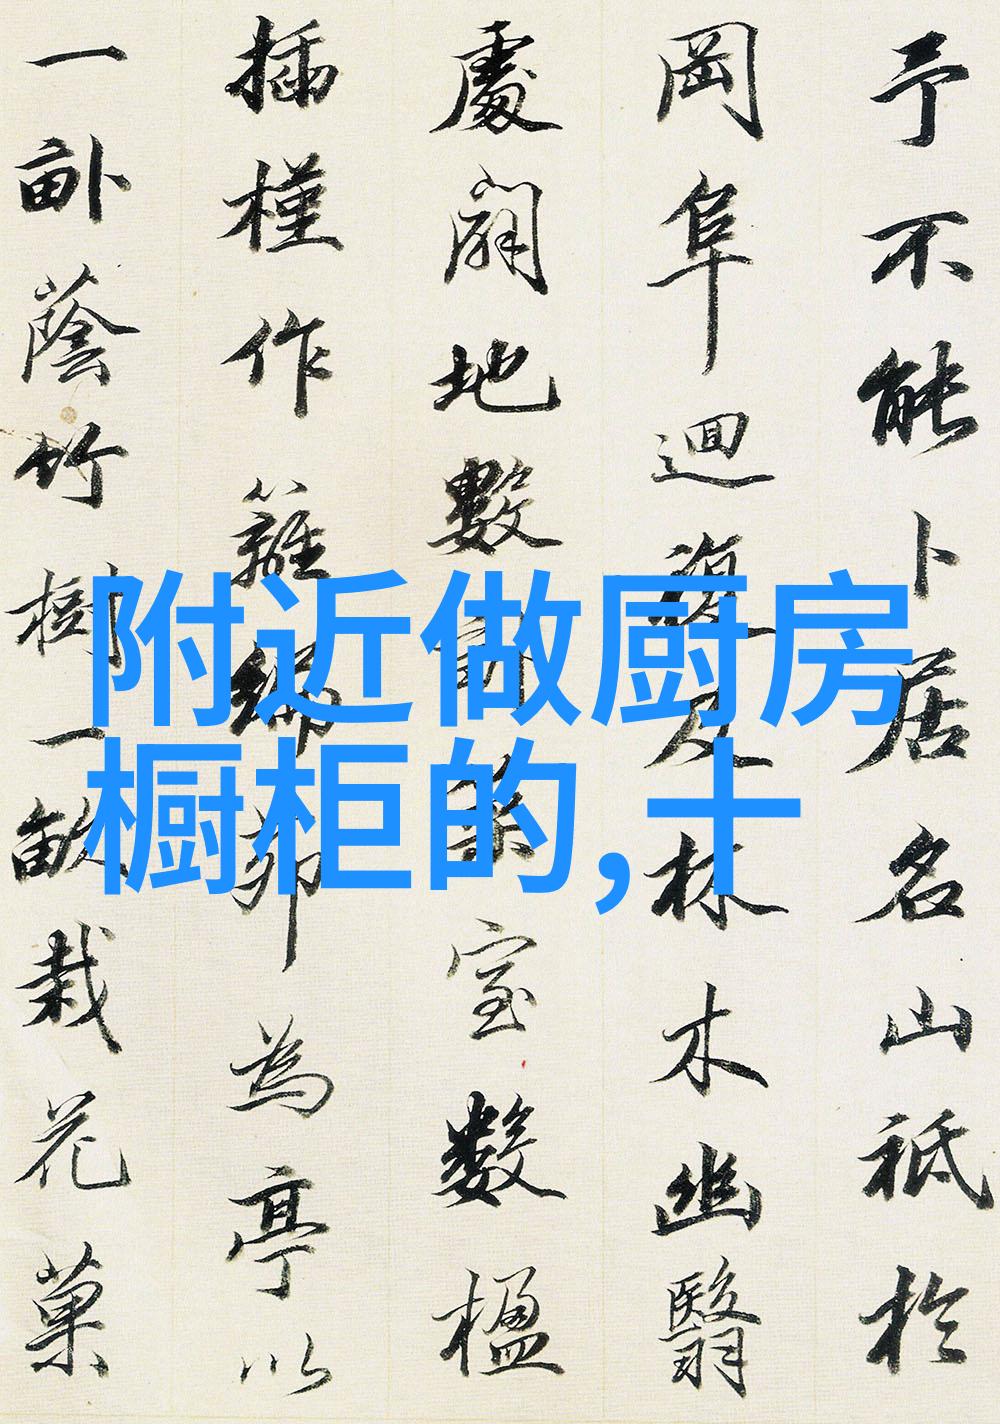 予不能卜居名山祗於
岡阜迴復及林木幽翳
處闢地數畝築室數楹
插槿作籬編茆為亭以
一畝蔭竹樹一畝栽花菓
附近做厨房
橱柜的,十